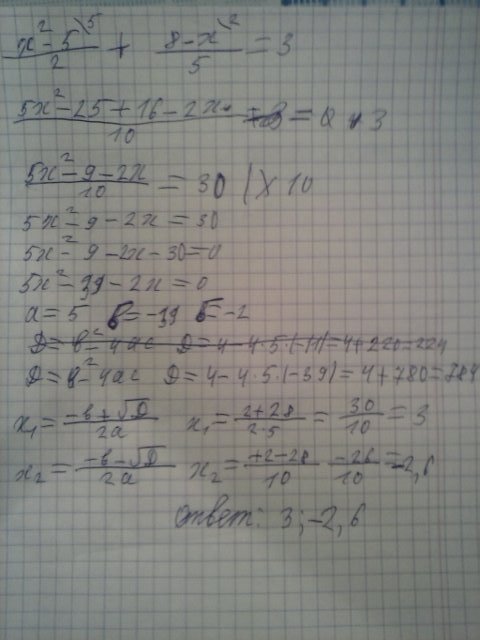 (x² - 5)/2 \5 + (8 - x)/5 \2 = 3
(5x² - 25 + 16 - 2x)/10 = 3
(5x² - 9 - 2x)/10 = 30 | × 10
5x² - 9 - 2x = 30
5x² - 9 - 2x - 30 = 0
5x² - 39 - 2x = 0
a = 5 c = -39 b = -2
D = b² - 4ac D = 4 - 4·5·(-11) = 4 + 220 = 224
D = b² - 4ac D = 4 - 4·5·(-39) = 4 + 780 = 784
x₁ = (-b + √D)/2a x₁ = (2 + 28)/2·5 = 30/10 = 3
x₂ = (-b - √D)/2a x₂ = (+2 - 28)/10 -26/10 = -2,6
ответ: 3; -2,6